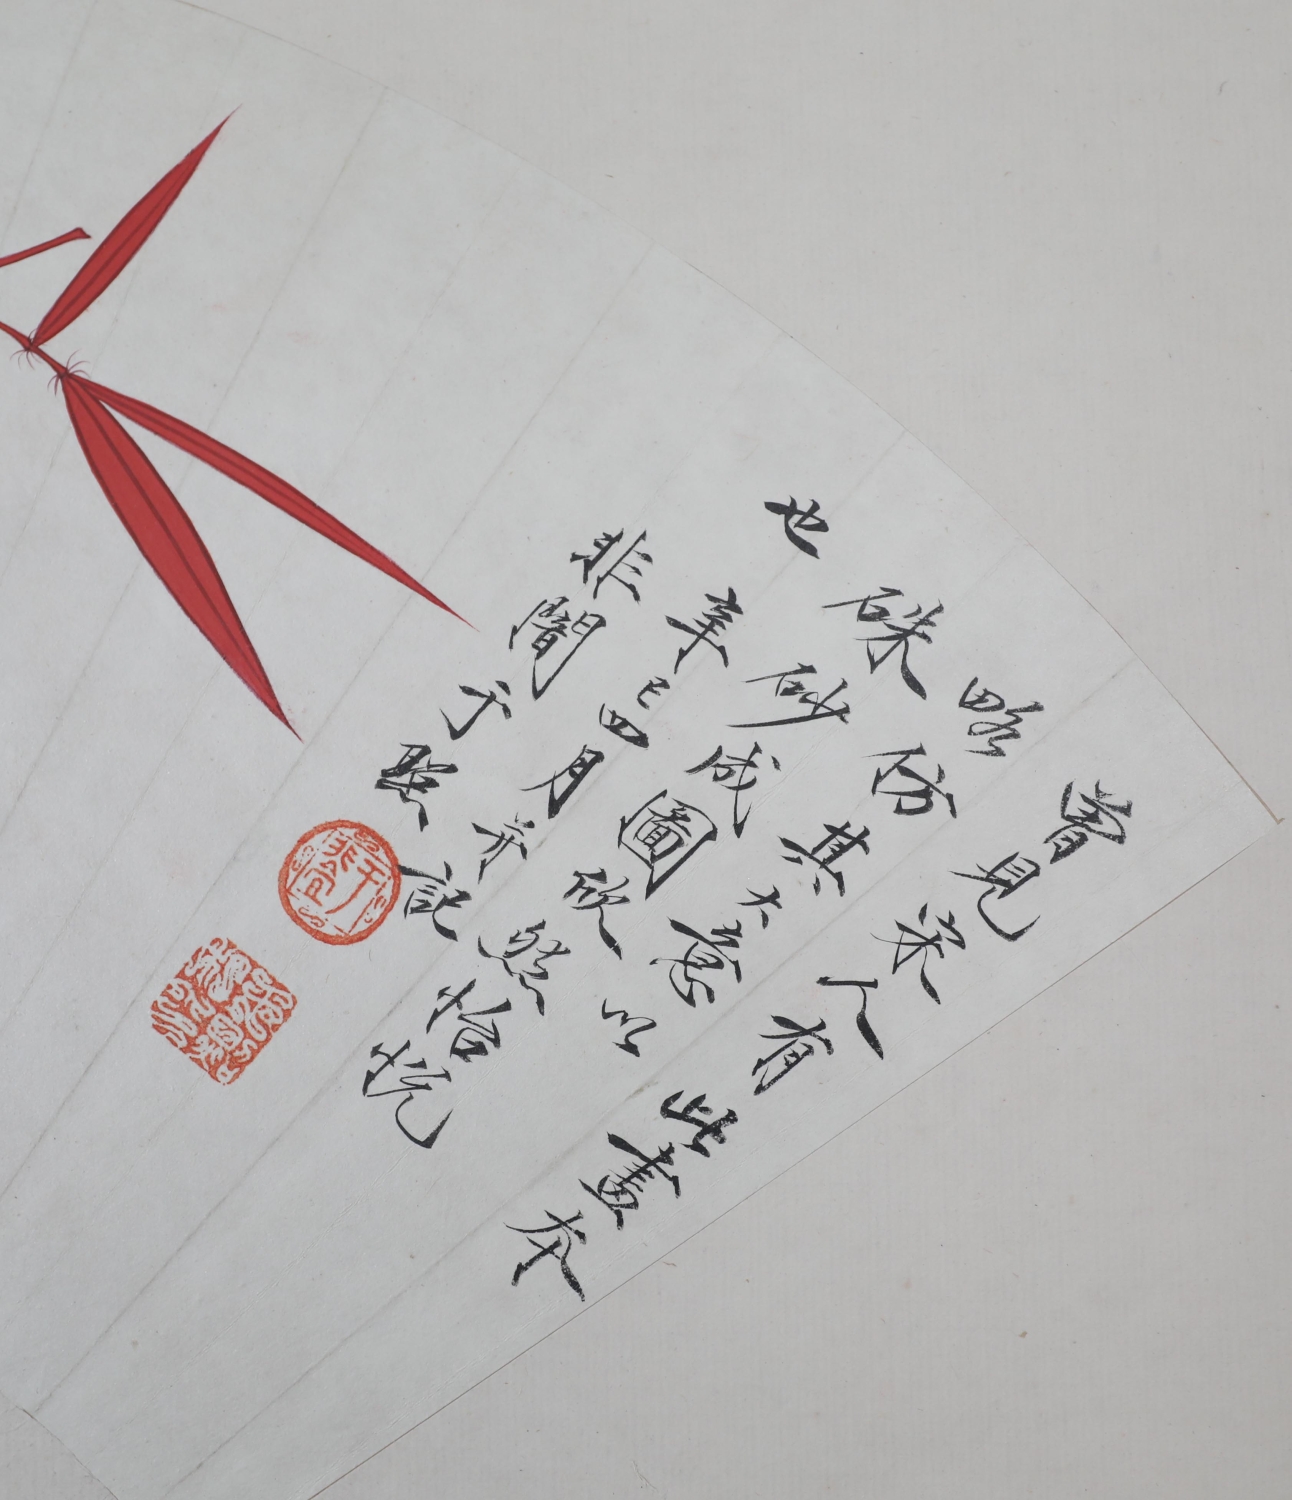 曾見宋人有此畫本
略仿其大意以
硃砂成圖欣然怡悦
也 辛巳四月并記
非闇于照